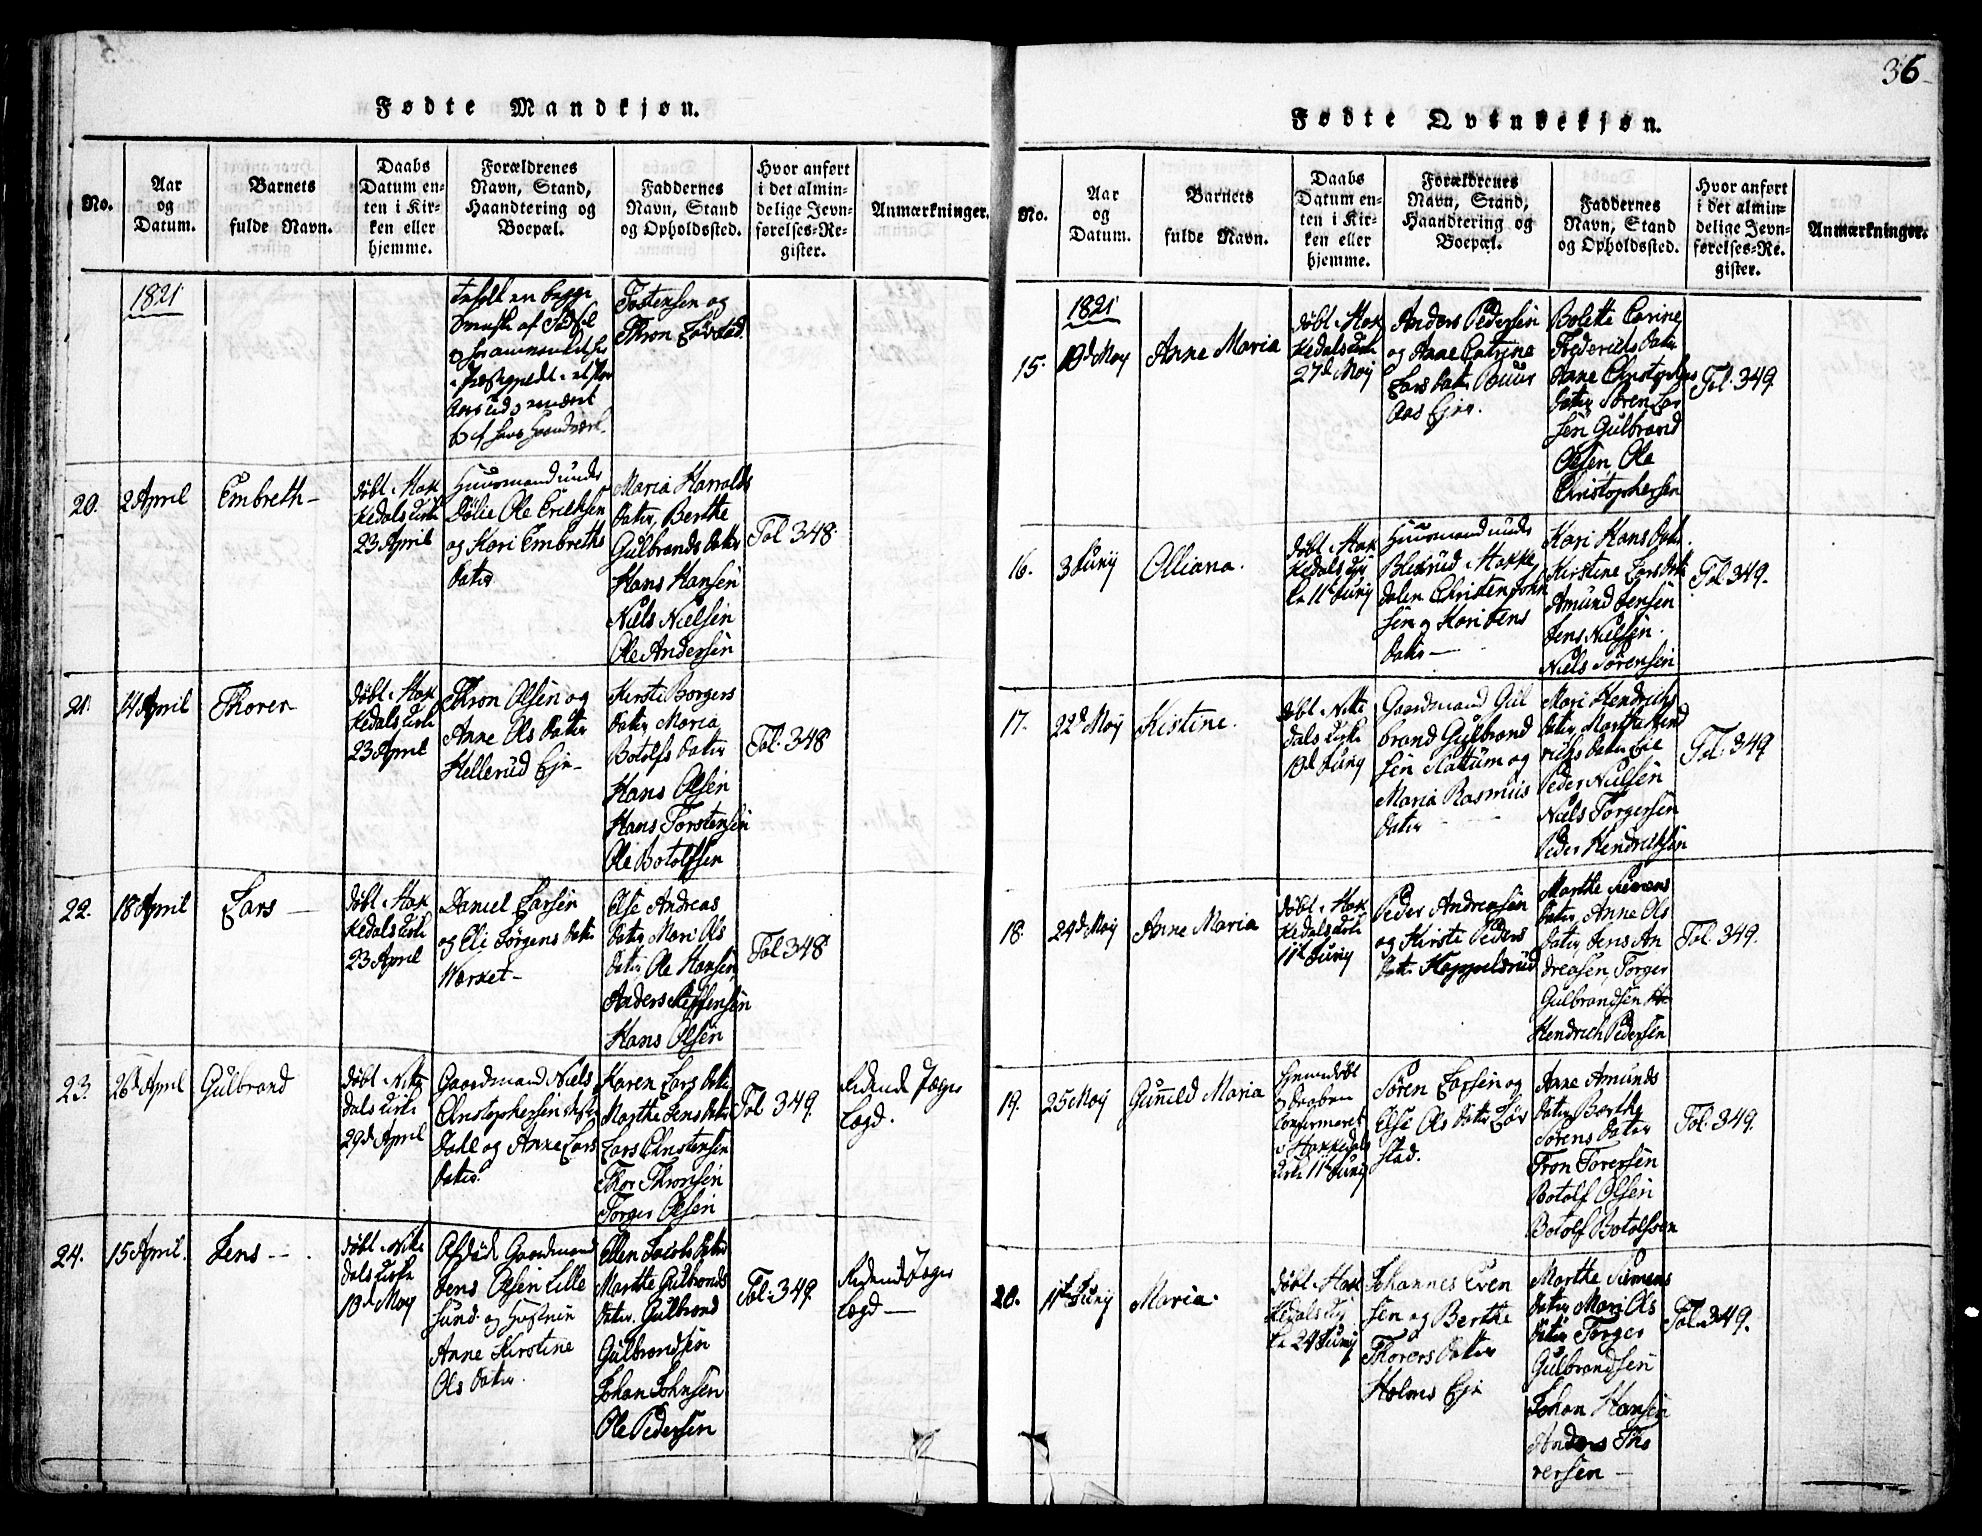 36
Fødte Mandkjøn.
No.
Aar
og
Datum.
Barnets
fulde Navn.
Daabs
Datum en-
ten i Kir-
ken eller
hjemme.
Forældrenes
Navn, Stand,
Haandtering og
Boepæl.
Faddernes
Navn, Stand
og Opholdssted.
Hvor anført
i det almin-
delige Jevn-
førelses-Re-
gister.
Anmærkninger.
1821
Tostensen og
Thron Løvstad
20.
2 April
Embreth
døbt i Hak
kedals Kirke
23 April
Huusmand under
Dølie Ole Eriksen
og Kari Embreths
datter
Maria Harralds
datter, Berthe
Gulbrands datter
Hans Hansen
Niels Nielsen
Ole Andersen
Fol 348
21.
14 April
Thorer
døbt i Hak
kedals Kirke
23 April
Thron Olsen og
Anne Ols datter
Hellerud Eje
Kirsti Borgers
datter Maria
Botolfs datter
Hans Olsen
Hans Torstensen
Ole Botolfsen
Fol. 348
22.
18 April
Lars
døbt i Hak
kedals Kirke
23 April
Daniel Larsen
og Eli Jørgens datter
Værket
Else Andreas
datter Mari Ols
datter Ole Hansen
Anders Steffensen
Hans Olsen
Fol 348
23.
26d April
Gulbrand
døbt i Nitte
dals Kirke
29d April
Gaardmand Niels
Christophersen
Dahl og Anne Lars
datter
Karen Lars datter
Marthe Jens datter
Lars Christensen
Thor Thronsen
Torger Olsen
Fol 349
Ridende Jæger
Lægd.
24.
15 April.
Jens
døbt i Nitte
dals Kirke
10d May
Afdøde Gaardmand
Jens Olsen Lille
sund og Hustruen
Anne Kirstine
Ols datter
Ellen Jacobs datter
Marthe Gulbrands
datter Gulbrand
Gulbrandsen
Johan Johnsen
Ole Pedersen
Fol. 349
Ridende Jæger
Lægd
Fødte Qvindekjøn.
No.
Aar
og
Datum.
Barnets
fulde Navn.
Daabs
Datum en-
ten i Kir-
ken eller
hjemme.
Forældrenes
Navn, Stand,
Haandtering og
Boepæl.
Faddernes
Navn, Stand
og Opholdssted.
Hvor anført
i det almin-
delige Jevn-
førelses-Re-
gister.
Anmærkninger.
1821
15.
10d May
Anne Maria
døbt i Hak
kedals Kirke
27d May
Anders Pedersen
og Anne Catrine
Lars datter Buur
Aas Ejer.
Bolette Carine
Frederichs datter
Anne Christophers
datter Søren Lar
sen Gulbrand
Olsen, Ole
Christophersen
Fol. 349
16.
3 Juny
Olliana.
døbt i Hak
kedals Kir
ke 11t Juny
Huusmand under
Blekrud i Hakke
dalen Christen John
sen og Kari Jens
datter
Kari Hans datter
Kirstine Lars datter
Amund Jensen
Jens Nielsen.
Niels Sørensen
Fol 349.
17.
22d May
Kistine.
døbt i Nitte
dals Kirke
10d Juny
Gaardmand Gul
brand Gulbrand
sen Slattum og
Maria Rasmus
datter
Mari Hendrichs
datter, Marthe Hend
richs datter
Peder Nielsen
Niels Torgersen
Peder Hendrichsen
Fol. 349
18.
24d May
Anne Maria
døbt i Hak
kedals Kirke
11t Juny
Peder Andreasen
og Kirsti Peders
datter Kappelsrud
Marthe Simens
datter, Anne Ols
datter Jens An
dreasen, Torger
Gulbrandsen
Hendrich Pedersen
Fol. 349.
19.
25 May
Gunild Maria
hjemmedøbt
og Daaben
confirmeret
i Hakkedals
Kirke 11t Juny
Søren Larsen og
Else Ols datter Løv
stad.
Anne Amunds
datter Berthe
Sørens datter
Tron Torersen
Botolf Olsen
Botolf Botolfsen
Fol. 349.
20.
11t Juny
Maria.
døbt i Hak
kedals Kir
ke 24 Juny
Johannes Even
sen og Berthe
Thorers datter
Holms Eje
Marthe Simens
datter Mari Ols
datter Torger
Gulbrandsen
Johan Hansen
Anders Tho
rersen
Fol. 349.